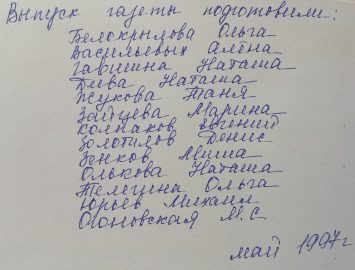 Выпуск газеты подготовили:
Белокрылова Ольга
Васильевых Алёна
Гавшина Наташа
Дива Наташа
Жукова Таня
Зайцева Марина
Колпаков Евгений
Золотилов Денис
Зенков Миша
Олькова Наташа
Телегина Ольга
Юрьев Михаил
Осоновская М.С
май 1997г